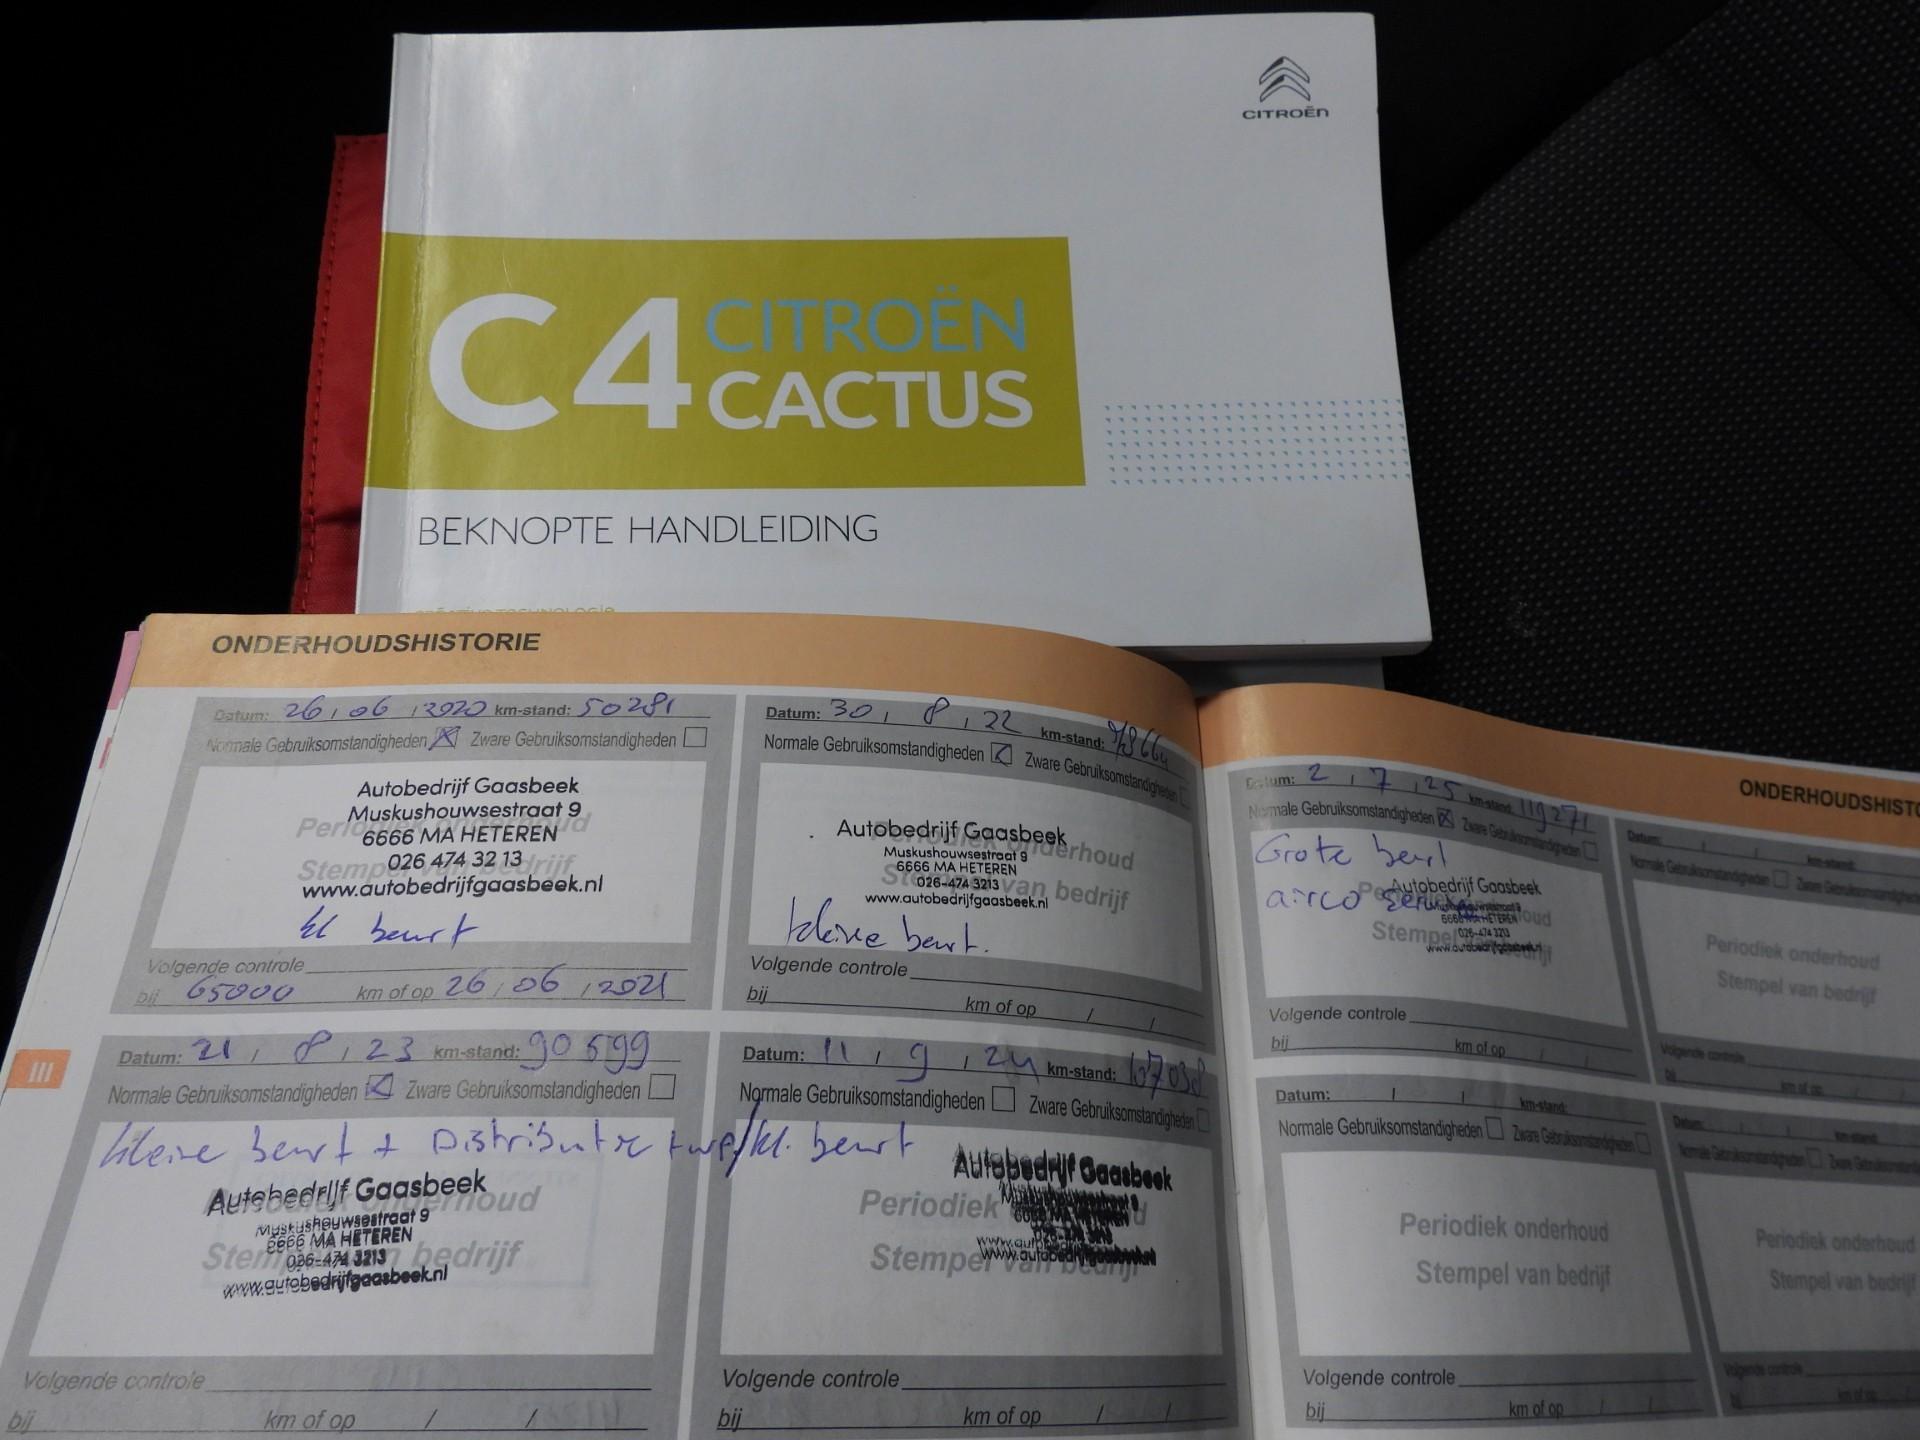 CITROËN
C4 CITROËN
CACTUS
BEKNOPTE HANDLEIDING
CREATIVE TECHNOLOGIE
ONDERHOUDSHISTORIE
Datum: 26 / 06 / 2020 km-stand: 50281
Normale Gebruiksomstandigheden Zware Gebruiksomstandigheden
Periodiek onderhoud
Stempel van bedrijf
Autobedrijf Gaasbeek
Muskushouwsestraat 9
6666 MA HETEREN
026 474 32 13
www.autobedrijfgaasbeek.nl
kl beurt
Volgende controle
bij 65000 km of op 26 / 06 / 2021
Datum: 30 / 8 / 22 km-stand:
Normale Gebruiksomstandigheden Zware Gebruiksomstandigheden
Periodiek onderhoud
Stempel van bedrijf
Autobedrijf Gaasbeek
Muskushouwsestraat 9
6666 MA HETEREN
026-474 3213
www.autobedrijfgaasbeek.nl
kleine beurt.
Volgende controle
bij km of op / /
III
Datum: 21 / 8 / 23 km-stand: 90599
Normale Gebruiksomstandigheden Zware Gebruiksomstandigheden
kleine beurt + Distributie
Periodiek onderhoud
Stempel van bedrijf
Autobedrijf Gaasbeek
Muskushouwsestraat 9
6666 MA HETEREN
026-474 3213
www.autobedrijfgaasbeek.nl
Volgende controle
bij km of op / /
Datum: 11 / 9 / 24 km-stand: 107038
Normale Gebruiksomstandigheden Zware Gebruiksomstandigheden
kl. beurt
Periodiek
Stempel van bedrijf
Autobedrijf Gaasbeek
Muskushouwsestraat 9
6666 MA HETEREN
026-474 3213
www.autobedrijfgaasbeek.nl
Volgende controle
bij km of op / /
ONDERHOUDSHISTO
Datum: 2 / 7 / 25 km-stand: 119271
Normale Gebruiksomstandigheden Zware Gebruiksomstandigheden
Grote beurt
airco service
Stempel van bedrijf
Autobedrijf Gaasbeek
Muskushouwsestraat 9
6666 MA HETEREN
026-474 3213
www.autobedrijfgaasbeek.nl
Volgende controle
bij km of op / /
Datum: / / km-stand:
Normale Gebruiksomstandigheden Zware
Periodiek onderhoud
Stempel van bedrijf
Volgende controle
bij km of op /
Datum: / / km-stand:
Normale Gebruiksomstandigheden Zware Gebruiksomstandigheden
Periodiek onderhoud
Stempel van bedrijf
Volgende controle
bij km of op / /
Datum: / / km-stand:
Normale Gebruiksomstandigheden Zware
Periodiek onderhoud
Stempel van bedrijf
Volgende controle
bij km of op /